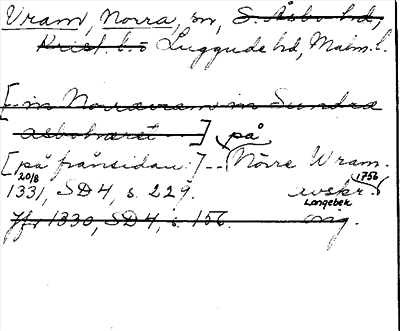 Vram, Norra, sn, S. Åsbo hd,
Krist. l. Luggude hd, Malm. l.
[- in Norravram in Sundra
asbohæret -] på
[på frånsidan:] -- Nörre Wram.
20/8 1756
1331, SD 4, s. 229. avskr.
Langebek
Jfr 1330, SD 4, s. 156. orig.